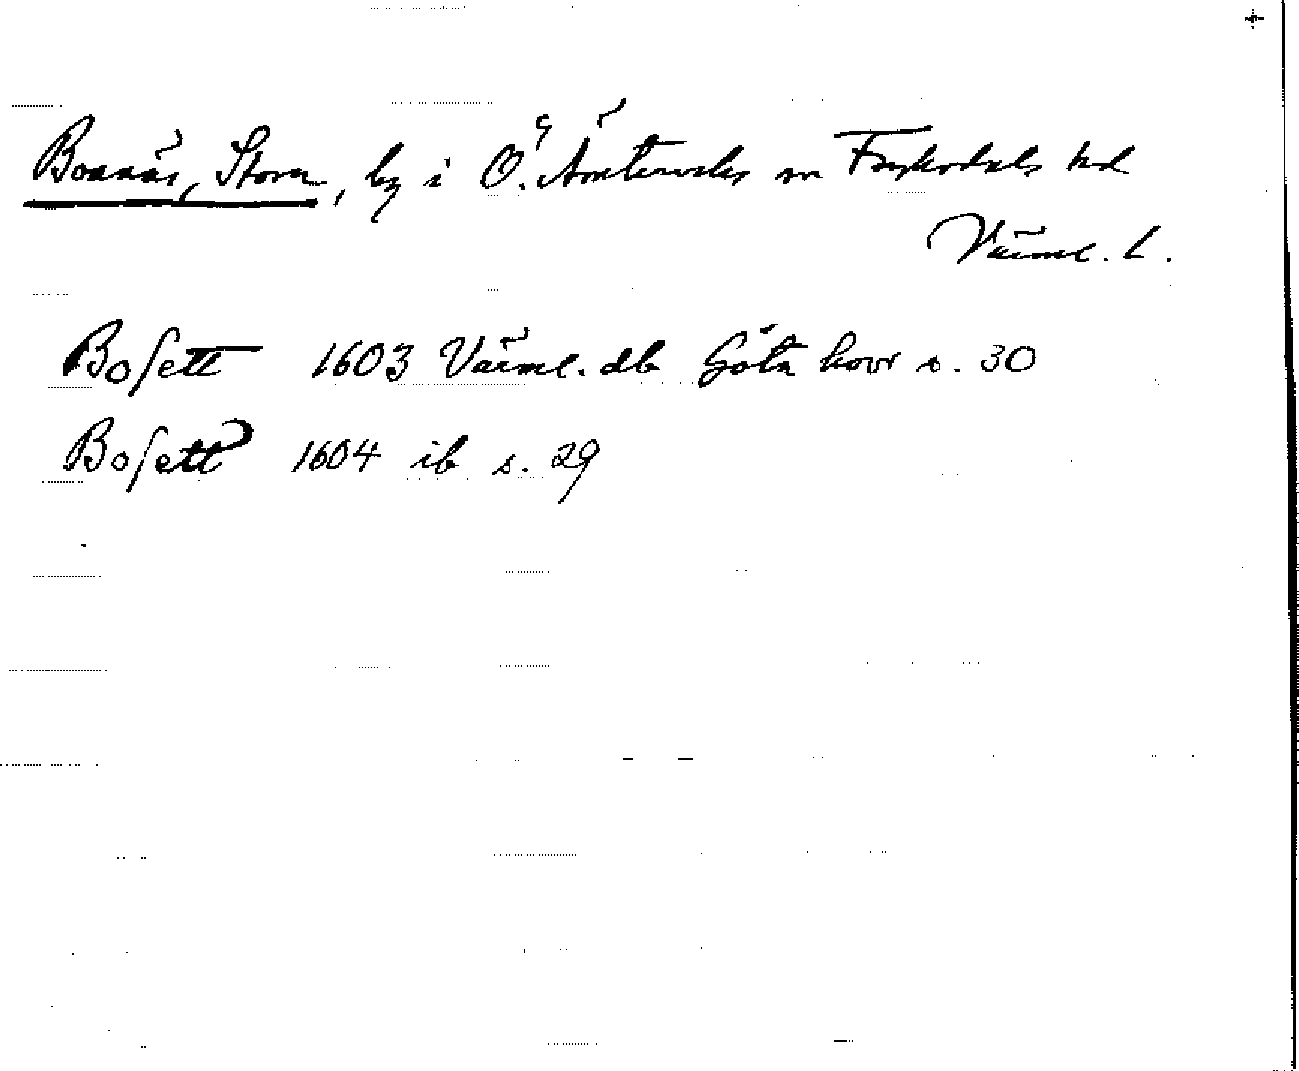 Bonäs, Stora, by i Ö. Ämterviks sn Fryksdals hd
Värml. L.
Bosett 1603 Värml. db Göta hovr s. 30
Bosett 1604 ib s. 29